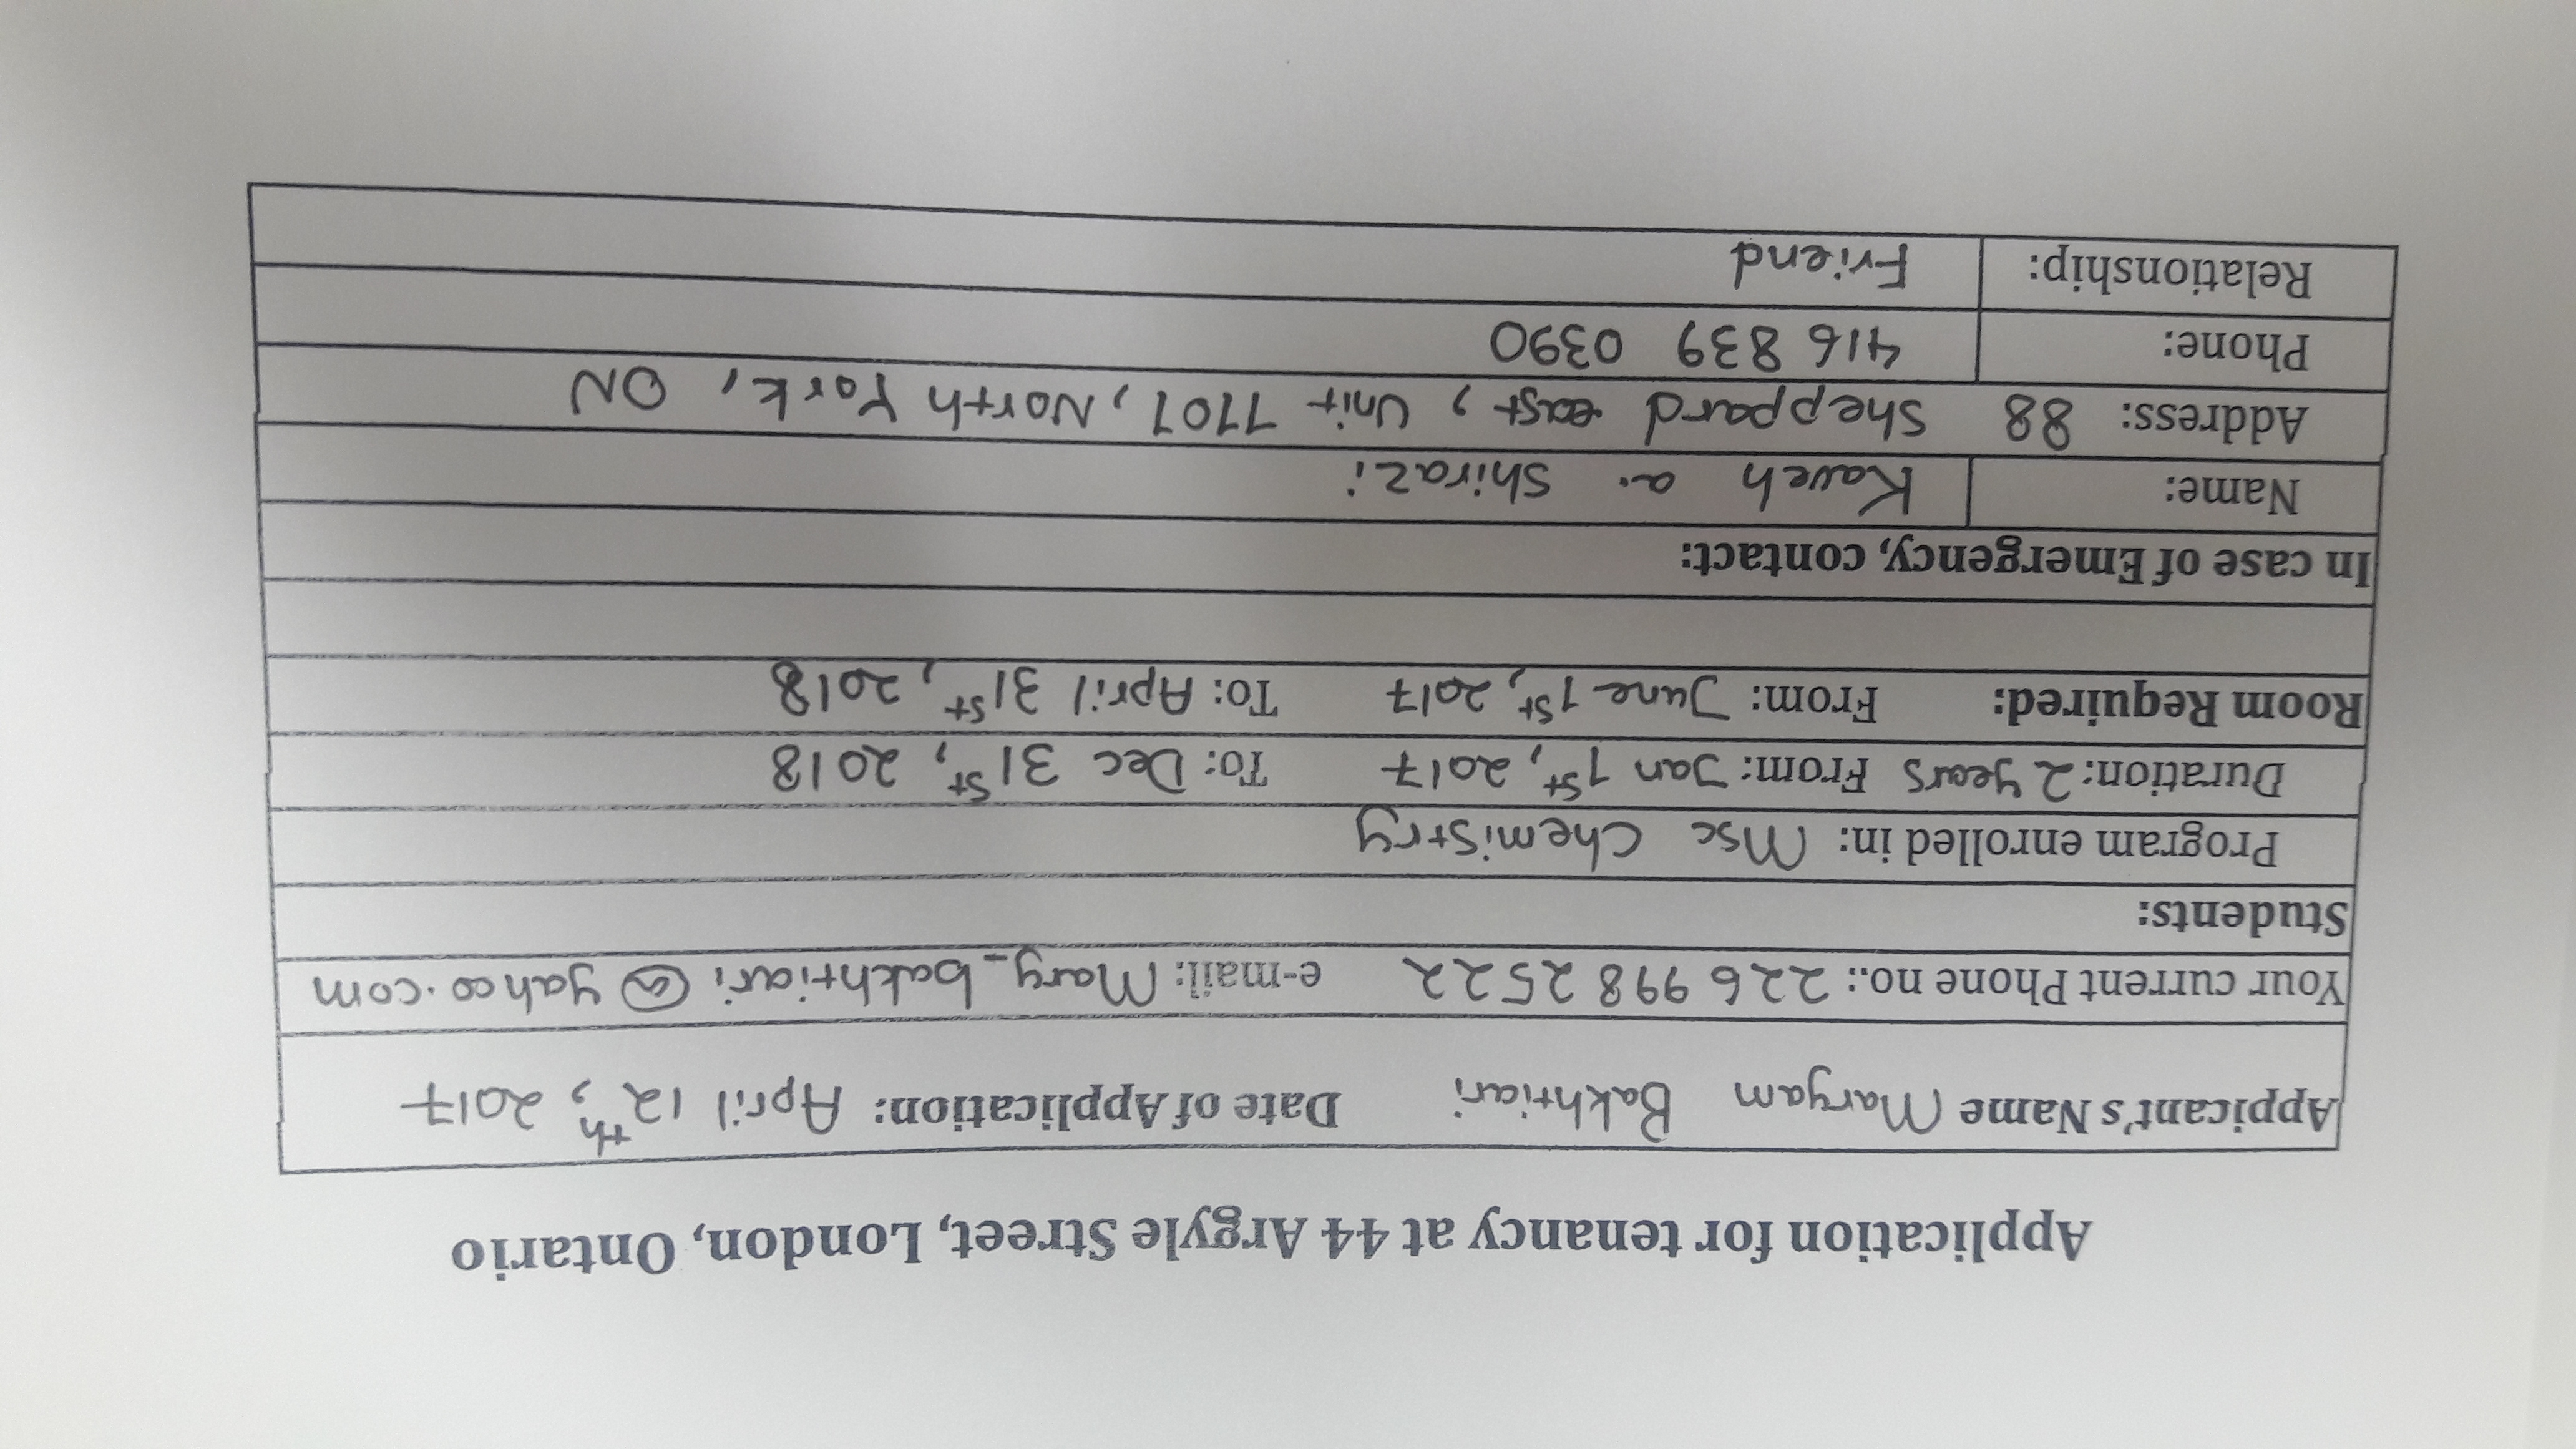 Application for tenancy at 44 Argyle Street, London, Ontario
Appicant's Name Maryam Bakhtiari Date of Application: April 12th, 2017
Your current Phone no.: 226 998 2522 e-mail: Mary_bakhtiari@yahoo.com
Students:
Program enrolled in: Msc Chemistry
Duration: 2 years From: Jan 1st, 2017 To: Dec 31st, 2018
Room Required: From: June 1st, 2017 To: April 31st, 2018
In case of Emergency, contact:
Name: Kaveh a. Shirazi
Address: 88 Sheppard east, Unit 1101, North York, ON
Phone: 416 839 0390
Relationship: Friend